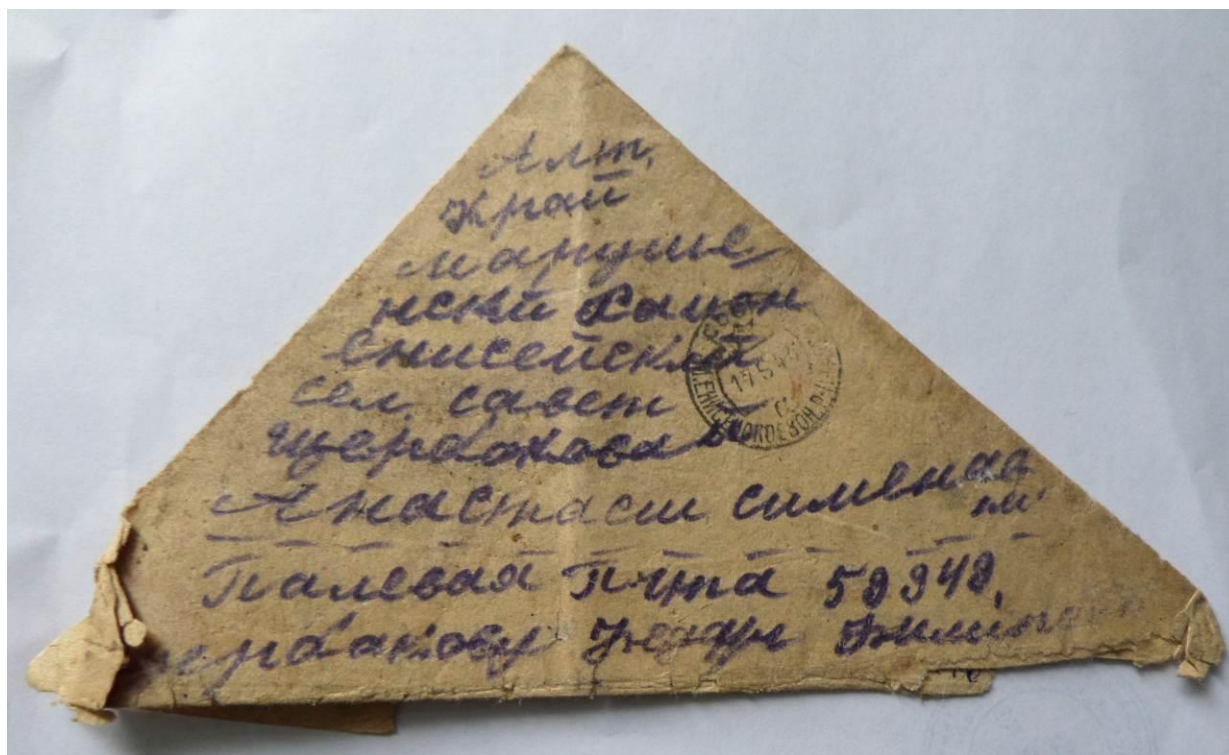 Алт.
Край
марушие
нскй Раион
Енисейский
сел. савет
Щербаковай
Анастасии сименав
ни
Палевая Пчта 59349,
щербакову